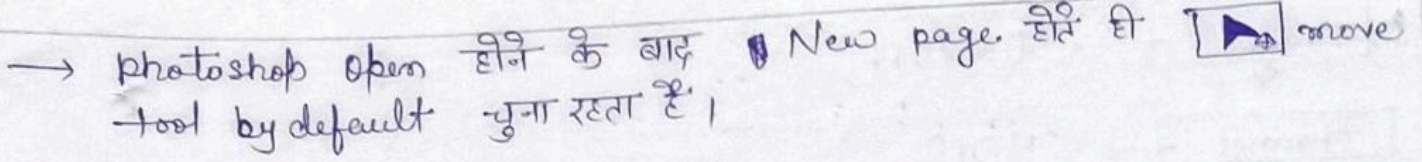 → photoshop open होने के बाद New page होते ही move
tool by default चुना रहता है।